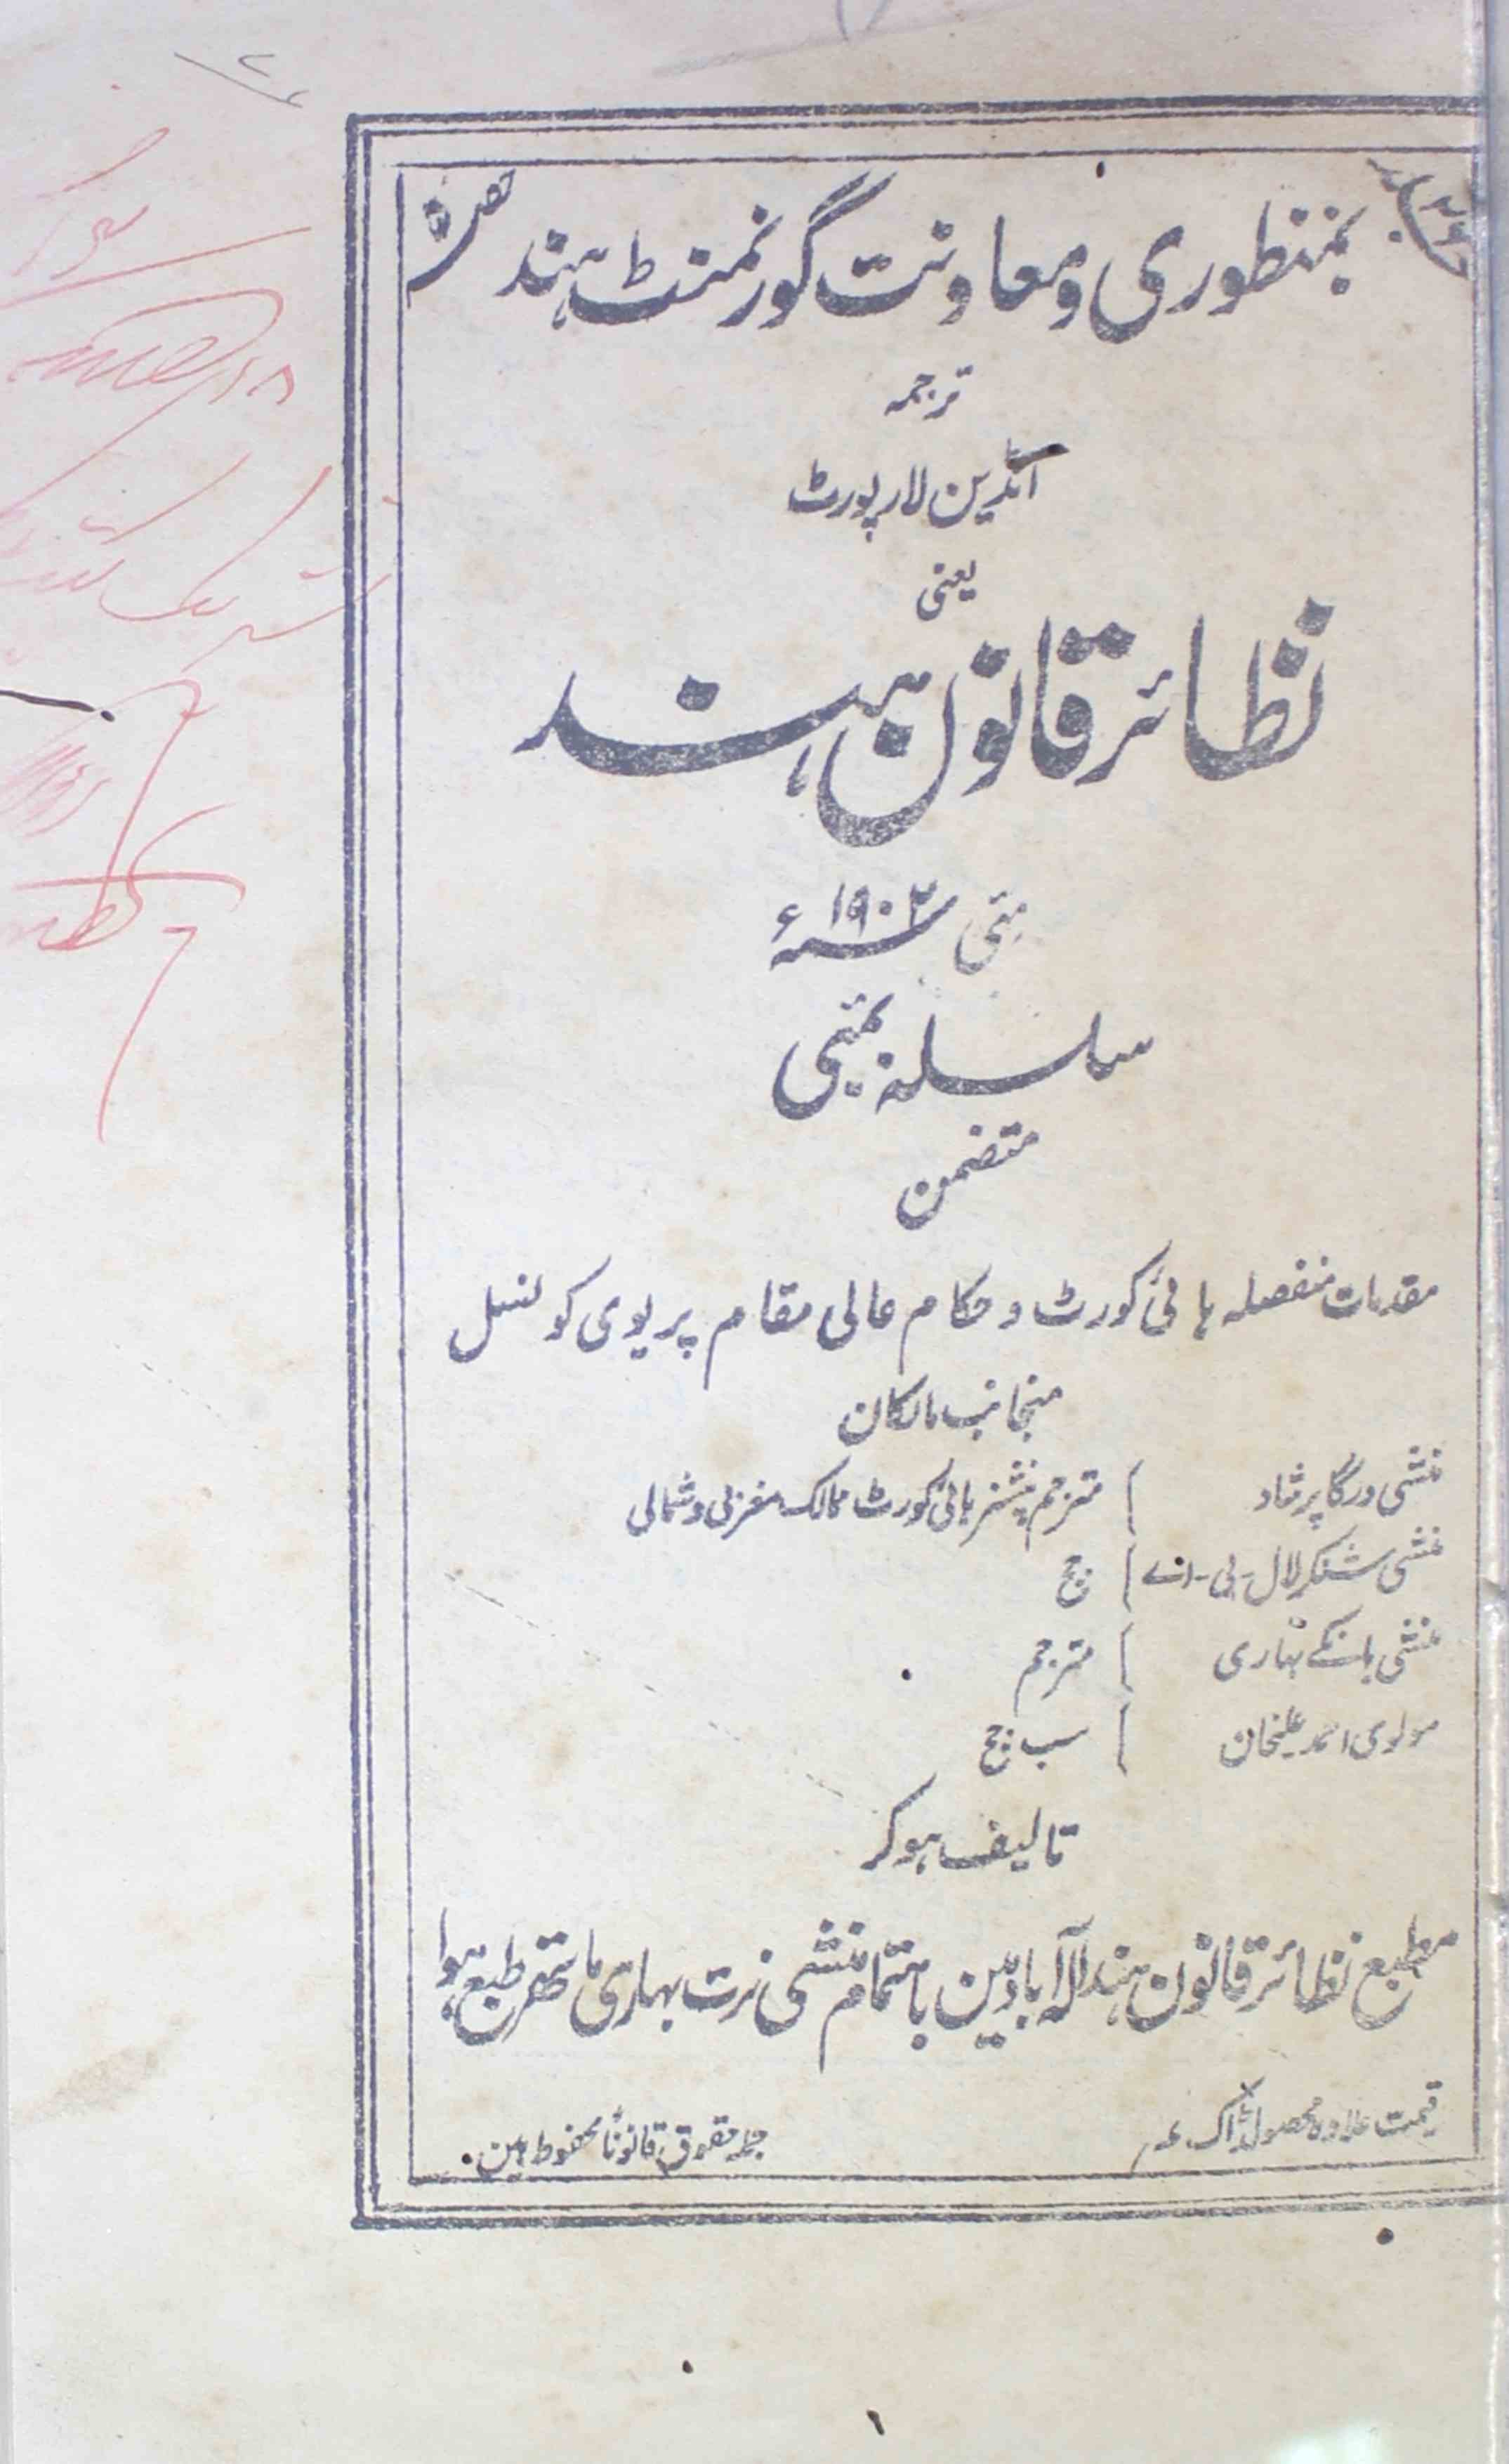 بمنظوری و معاونت گورنمنٹ ہند
حصہ ۵
ترجمہ
انڈین لا رپورٹ
یعنی
نظائر قانون ہند
مئی ۱۹۰۲ء
سلسلہ بمبئی
متضمن
مقدمات منفصلہ ہائی کورٹ و حکام عالی مقام پریوی کونسل
منجانب مالکان
منشی درگا پرشاد } مترجم پنشنر ہائی کورٹ ممالک مغربی و شمالی
منشی شنکر لال - بی - اے } جج
منشی بانکے بہاری } مترجم
مولوی احمد علیخان } سب جج
تالیف ہوکر
مطبع نظائر قانون ہند الہ آباد مین باہتمام منشی نرت بہاری ماتھر طبع ہوا
قیمت علاوہ محصول ڈاک
جملہ حقوق قانوناً محفوظ ہین.
۱